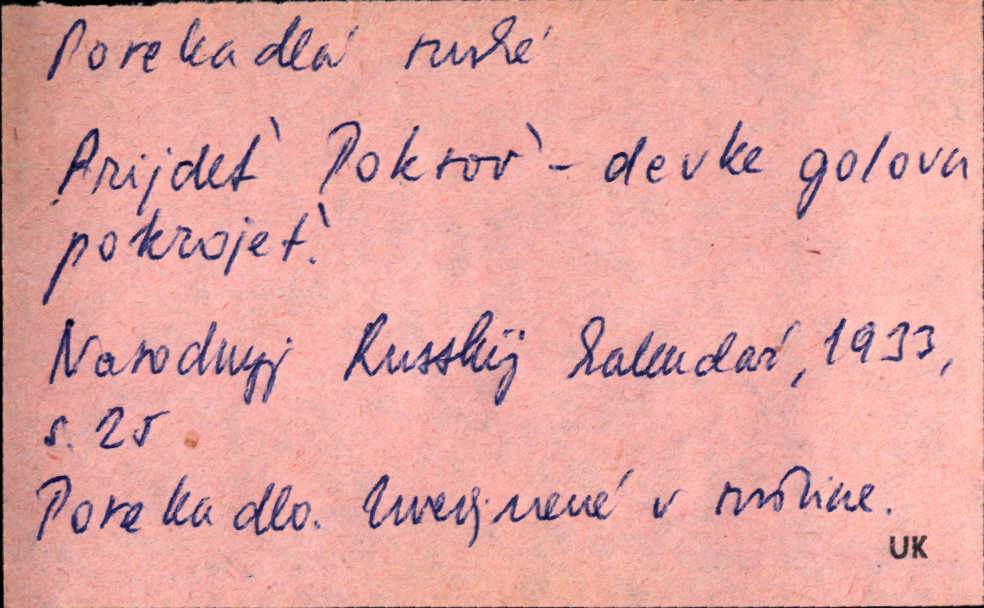 Porekadlá ruské
Prijdet` Pokrov` - devke golova
pokrojet`.
Narodnyj Russkij kalendař, 1933,
s. 25
Porekadlo. Uverejnené v ruštine.
UK